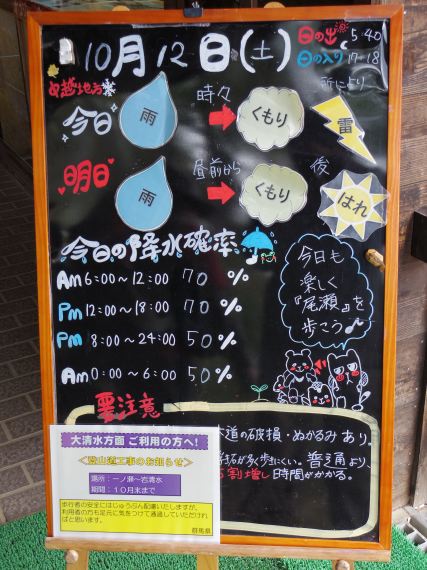 10月12日(土)
日の出 5:40
日の入り 17:18
中越地方
今日 雨 時々 くもり 所により 雷
明日 雨 昼前から くもり 後 はれ
今日の降水確率
Am 6:00〜12:00 70 %
Pm 12:00〜18:00 70 %
Pm 8:00〜24:00 50 %
Am 0:00〜6:00 50 %
今日も
楽しく
『尾瀬』を
歩こう♪
要注意
道の破損・ぬかるみ あり。
歩きにくい。普通より、
割増し 時間がかかる。
大清水方面 ご利用の方へ!
<登山道工事のお知らせ>
場所:一ノ瀬〜岩清水
期間:10月末まで
歩行者の安全にはじゅうぶん配慮いたしますが、
利用者の方も足元に気をつけて通過していただけれ
ばと思います。
群馬県